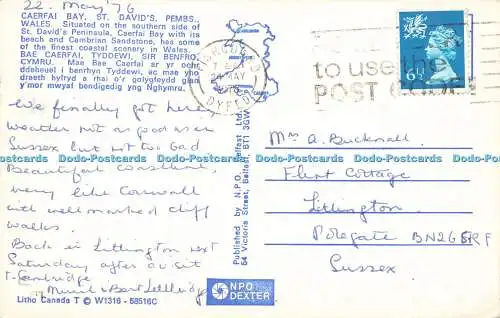 22. May '76
CAERFAI BAY, ST. DAVID'S, PEMBS.,
WALES. Situated on the southern side of
St. David's Peninsula, Caerfai Bay with its
beach and Cambrian Sandstone, has some
of the finest coastal scenery in Wales.
BAE CAERFAI, TYDDEWI, SIR BENFRO,
CYMRU. Mae Bae Caerfai ar yr ochr
ddeheuol i benrhyn Tyddewi, ac mae yho
draeth hyfryd a rhai o'r golygfeydd glan
y mor mwyaf bendigedig yng Nghymru.
We finally got here
weather not as good as in
Sussex but not too bad
Beautiful coastline,
very like Cornwall
with well marked cliff
walks.
Back in Litlington next
Saturday after a visit
t. Cambridge.
Muriel & Bert
Litho Canada T © W1316 - 58516C
Published by N.P.O. Belfast Ltd.
54 Victoria Street, Belfast, BT1 3GW
NPO
DEXTER
24 MAY
1976
DYFED
to use the
POST CODE
6½P
Mrs A. Bucknall
Flint Cottage
Litlington
Polegate BN26 5RF
Sussex
Dodo-Postcards Dodo-Postcards Dodo-Postcards Dodo-Postcards Dodo-Postcards Dodo-Postcards